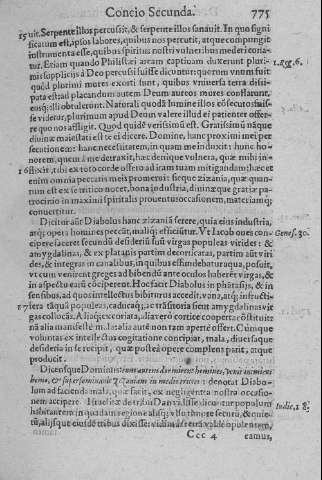 Concio Secunda. 775
15 uit. Serpente illos percussit, & serpente illos sanauit. In quo signi
ficatum est, ipsos labores, quibus nos percutit, atque compungit
instrumenta esse, quibus spiritus nostri vulneribus mederi conſa-
tur. Etiam quando Philistæi arcam captiuam duxerunt pluri-
mis supplicijs à Deo percussi fuisse dicuntur: quorum vnum fuit 1. Reg. 6.
quòd plurimi mures exorti sunt, quibus vniuersa terra dissi-
pata est: ad placandum autem Deum aureos mures conflarunt,
eosq; illi obtulerunt. Naturali quodã lumine illos cõsecutos fuis-
se videtur, plurimum apud Deum valere illud ei patienter offer-
re quo nos affligit. Quod quidẽ verissimũ est. Gratissimũ nãque
diuinæ maiestati est te ei dicere. Domine, hanc proximi mei per
secutionem: hanc necessitatem, in quam me induxit: hunc ho-
norem, quem
16 flixit, tibi ex toto corde offero ad iram tuam mitigandam: hæc et
enim omnia peccatis meis promerui: sicque zizania, quæ quan-
tum est ex se tritico nocet, bona industria, diuinæque gratiæ pa-
trocinio in maximi spiritalis prouentus occasionem, materiamq;
conuertitur.
Dicitur aũt Diabolus hanc zizaniã serere, quia eius industria,
atq; opera homines peccãt, maliq; efficiũtur. Vt Iacob oues con- Genes. 30.
cipere faceret secundũ desideriũ suũ virgas populeas virides: &
amygdalinas, & ex platanis partim decorticatas, partim aũt viri
des, & integras in canalibus, in quibus effundebatur aqua, posuit,
vt cum venirent greges ad bibendũ ante oculos haberẽt virgas, &
in aspectu earũ cõciperent. Hoc facit Diabolus in phãtasijs, & in
sensibus, ad quos intellectus bibiturus accedit. vana, atq; infructi-
17 fera tãquã populeas, caducaq; ac trãsitoria sicut amygdalinas vir
gas collocãs. Aliaq; excoriata, alia verò cortice cooperta cõstituit:
nã alia manifestẽ m.la: alia autẽ non tam apertẽ offert. Cumque
voluntas ex intellectus cogitatione concipiat, mala, diuersaque
desideria in se recipit, quæ postea opere complens parit, atque
producit.
Dicensque Dominus: cum autem dormirent homines, venit inimicus
homo, & superseminauit zizaniam in medio tritici: denotat Diabo-
lum ad facienda mala, quæ facit, ex negligentia nostra occasio-
nem accipere. Israelitæ de tribu Dan vidisse dicuntur populum
habitantem in quadam regione absq; vllo timore securũ, & quie- Iudic. 18.
tũ, alijsque eiusdẽ tribus dixisse: vidimus terrã valde opulentam,
Ccc 4 eamus,